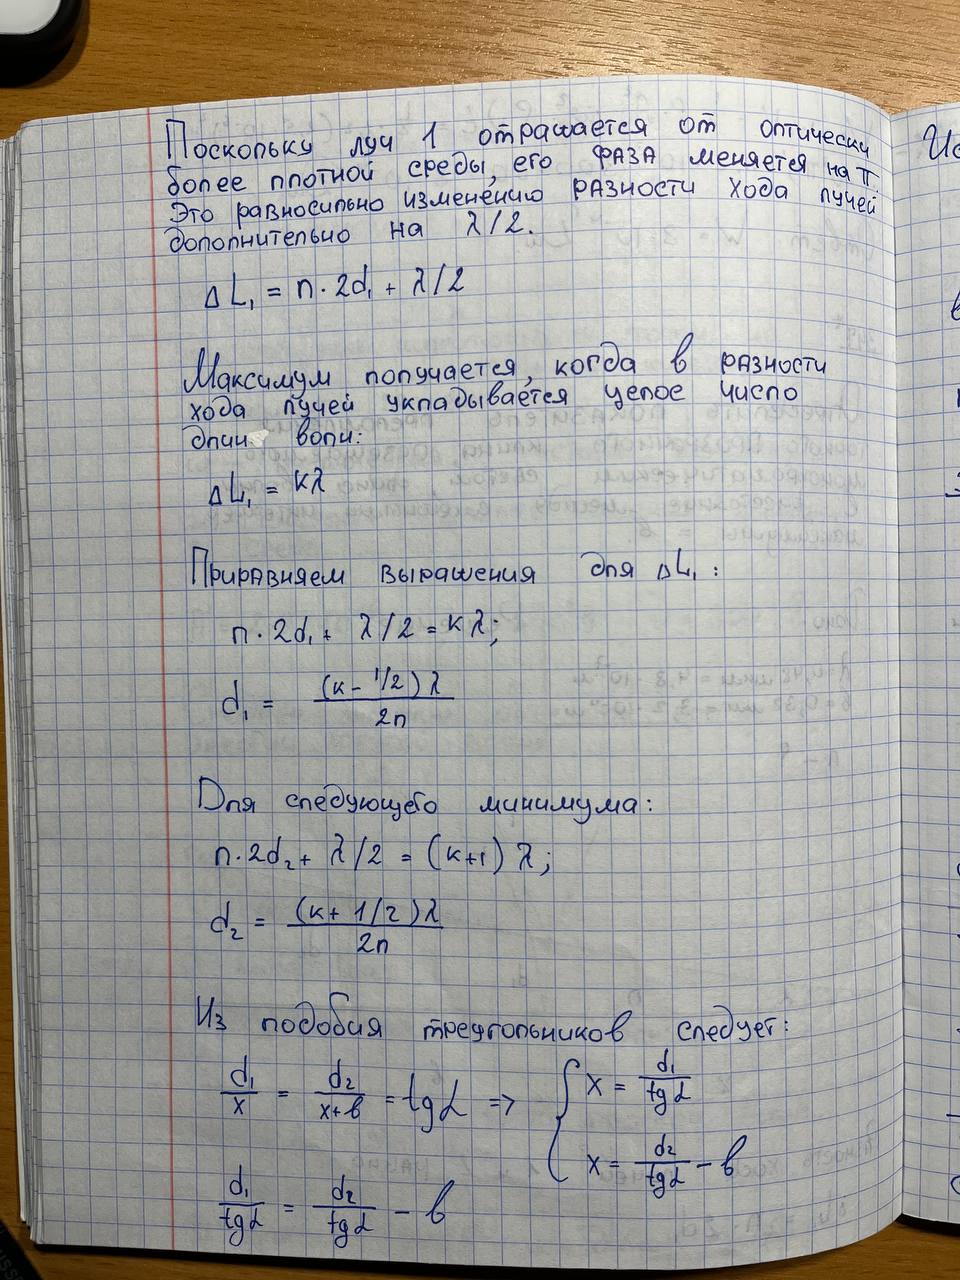 Поскольку луч 1 отражается от оптически
более плотной среды, его фаза меняется на π.
Это равносильно изменению разности хода лучей
дополнительно на λ/2.
ΔL₁ = n · 2d₁ + λ/2
Максимум получается, когда в разности
хода лучей укладывается целое число
длин волн:
ΔL₁ = kλ
Приравняем выражения для ΔL₁:
n · 2d₁ + λ/2 = kλ;
d₁ = (k - 1/2)λ / 2n
Для следующего минимума:
n · 2d₂ + λ/2 = (k+1)λ;
d₂ = (k + 1/2)λ / 2n
Из подобия треугольников следует:
d₁/x = d₂/(x+b) = tgα => { x = d₁/tgα
x = d₂/tgα - b
d₁/tgα = d₂/tgα - b